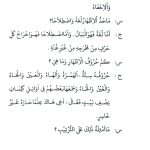 وَالْإِخْفَاءُ
س: مَا حَدُّ الْإِظْهَارِ لُغَةً وَاصْطِلَاحًا؟
ج: أَمَّا لُغَةً فَهُوَ الْبَيَانُ. وَأَمَّا اصْطِلَاحًا فَهُوَ إِخْرَاجُ كُلِّ
حَرْفٍ مِنْ مَخْرَجِهِ مِنْ غَيْرِ غُنَّةٍ.
س: كَمْ حُرُوفُ الْإِظْهَارِ وَمَا هِيَ؟
ج: حُرُوفُهُ سِتَّةٌ: الْهَمْزَةُ وَالْهَاءُ وَالْعَيْنُ وَالْحَاءُ
وَالْغَيْنُ وَالْخَاءُ وَجَمَعَهَا بَعْضُهُمْ فِي أَوَائِلِ كَلِمَاتِ
نِصْفِ بَيْتٍ فَقَالَ: أَخِي هَاكَ عِلْمًا حَازَهُ غَيْرُ
خَاسِرٍ.
س: مَا أَمْثِلَةُ ذَلِكَ عَلَى التَّرْتِيبِ؟